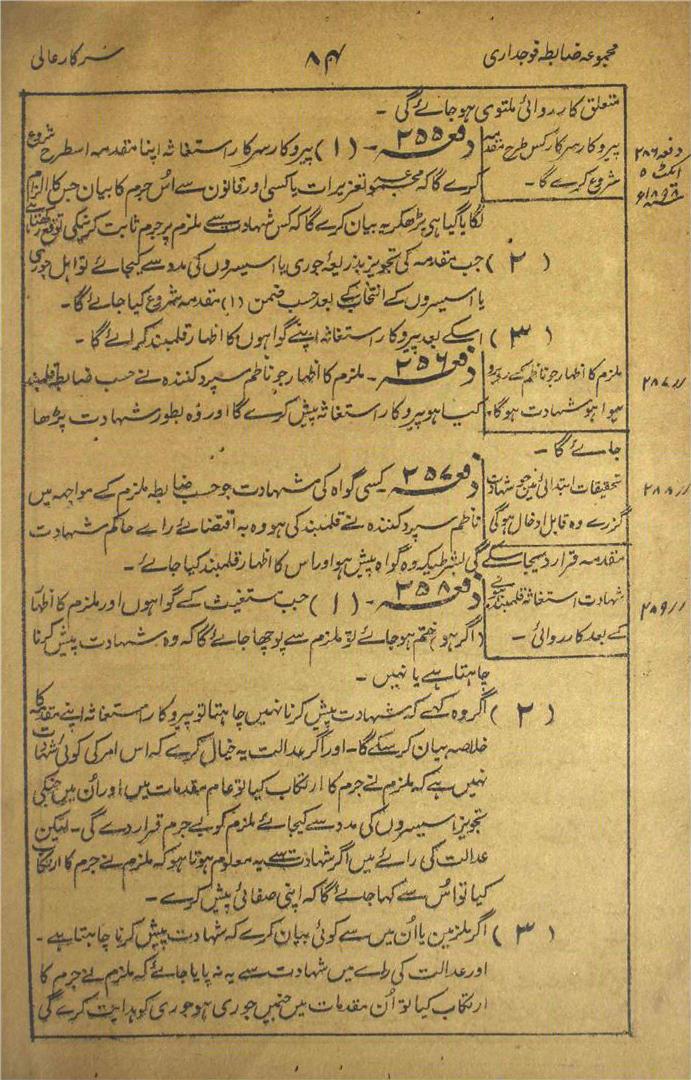 مجموعہ ضابطہ فوجداری
۸۴
سرکار عالی
متعلق کارروائی ملتوی ہو جائے گی ۔
پیروکار سرکار کس طرح مقدمہ
شروع کرے گا ۔
دفعہ ۲۸۶
ایکٹ ۵
۱۸۹۸ء
دفعہ ۲۵۵ ۔ (۱) پیروکار سرکار استغاثہ اپنا مقدمہ اسطرح شروع
کرے گا کہ مجموعہ تعزیرات یا کسی اور قانون سے اُس جرم کا بیان جس کا الزام
لگایا گیا ہی پڑھکر یہ بیان کرے گا کہ کس شہادت سے ملزم پر جرم ثابت کرنیکی توقع رکھتا ہے
(۲) جب مقدمہ کی تجویز بذریعۂ جوری یا اسیسروں کی مدد سے کیجائے تو اہل جوری
یا اسیسروں کے انتخاب کے بعد حسب ضمن (۱) مقدمہ شروع کیا جائے گا ۔
(۳) اسکے بعد پیروکار استغاثہ اپنے گواہوں کا اظہار قلمبند کرائے گا ۔
ملزم کا اظہار جو ناظم کے روبرو
ہوا ہو شہادت ہوگا ۔
〃 ۲۸۷
دفعہ ۲۵۶ ۔ ملزم کا اظہار جو ناظم سپرد کنندہ نے حسب ضابطہ قلمبند
کیا ہو پیروکار استغاثہ پیش کرے گا اور وُہ بطور شہادت پڑھا
جائے گا ۔
تحقیقات ابتدائی میں جو شہادت
گزرے وہ قابل ادخال ہوگی
〃 ۲۸۸
دفعہ ۲۵۷ ۔ کسی گواہ کی شہادت جو حسب ضابطہ ملزم کے مواجہہ میں
ناظم سپرد کنندہ نے قلمبند کی ہو وہ بہ اقتضائے رائے حاکم شہادت
مقدمہ قرار دیجا سکے گی بشرطیکہ وہ گواہ پیش ہو اور اس کا اظہار قلمبند کیا جائے ۔
شہادت استغاثہ قلمبند ہونے
کے بعد کارروائی ۔
〃 ۲۸۹
دفعہ ۲۵۸ ۔ (۱) جب مستغیث کے گواہوں اور ملزم کا اظہار
(اگر ہو) ختم ہو جائے تو ملزم سے پوچھا جائے گا کہ وہ شہادت پیش کرنا
چاہتا ہے یا نہیں ۔
(۲) اگر وہ کہے کہ شہادت پیش کرنا نہیں چاہتا تو پیروکار استغاثہ اپنے مقدمہ کا
خلاصہ بیان کر سکے گا ۔ اور اگر عدالت یہ خیال کرے کہ اس امر کی کوئی شہادت
نہیں ہے کہ ملزم نے جرم کا ارتکاب کیا تو عام مقدمات میں اور اُن میں جنکی
تجویز اسیسروں کی مدد سے کیجائے ملزم کو بے جرم قرار دے گی ۔ لیکن
عدالت کی رائے میں اگر شہادت سے یہ معلوم ہوتا ہو کہ ملزم نے جرم کا ارتکاب
کیا تو اُس سے کہا جائے گا کہ اپنی صفائی پیش کرے ۔
(۳) اگر ملزمین یا اُن میں سے کوئی بیان کرے کہ شہادت پیش کرنا چاہتا ہے ۔
اور عدالت کی رائے میں شہادت سے یہ نہ پایا جائے کہ ملزم نے جرم کا
ارتکاب کیا تو اُن مقدمات میں جنمیں جوری ہو جوری کو ہدایت کرے گی